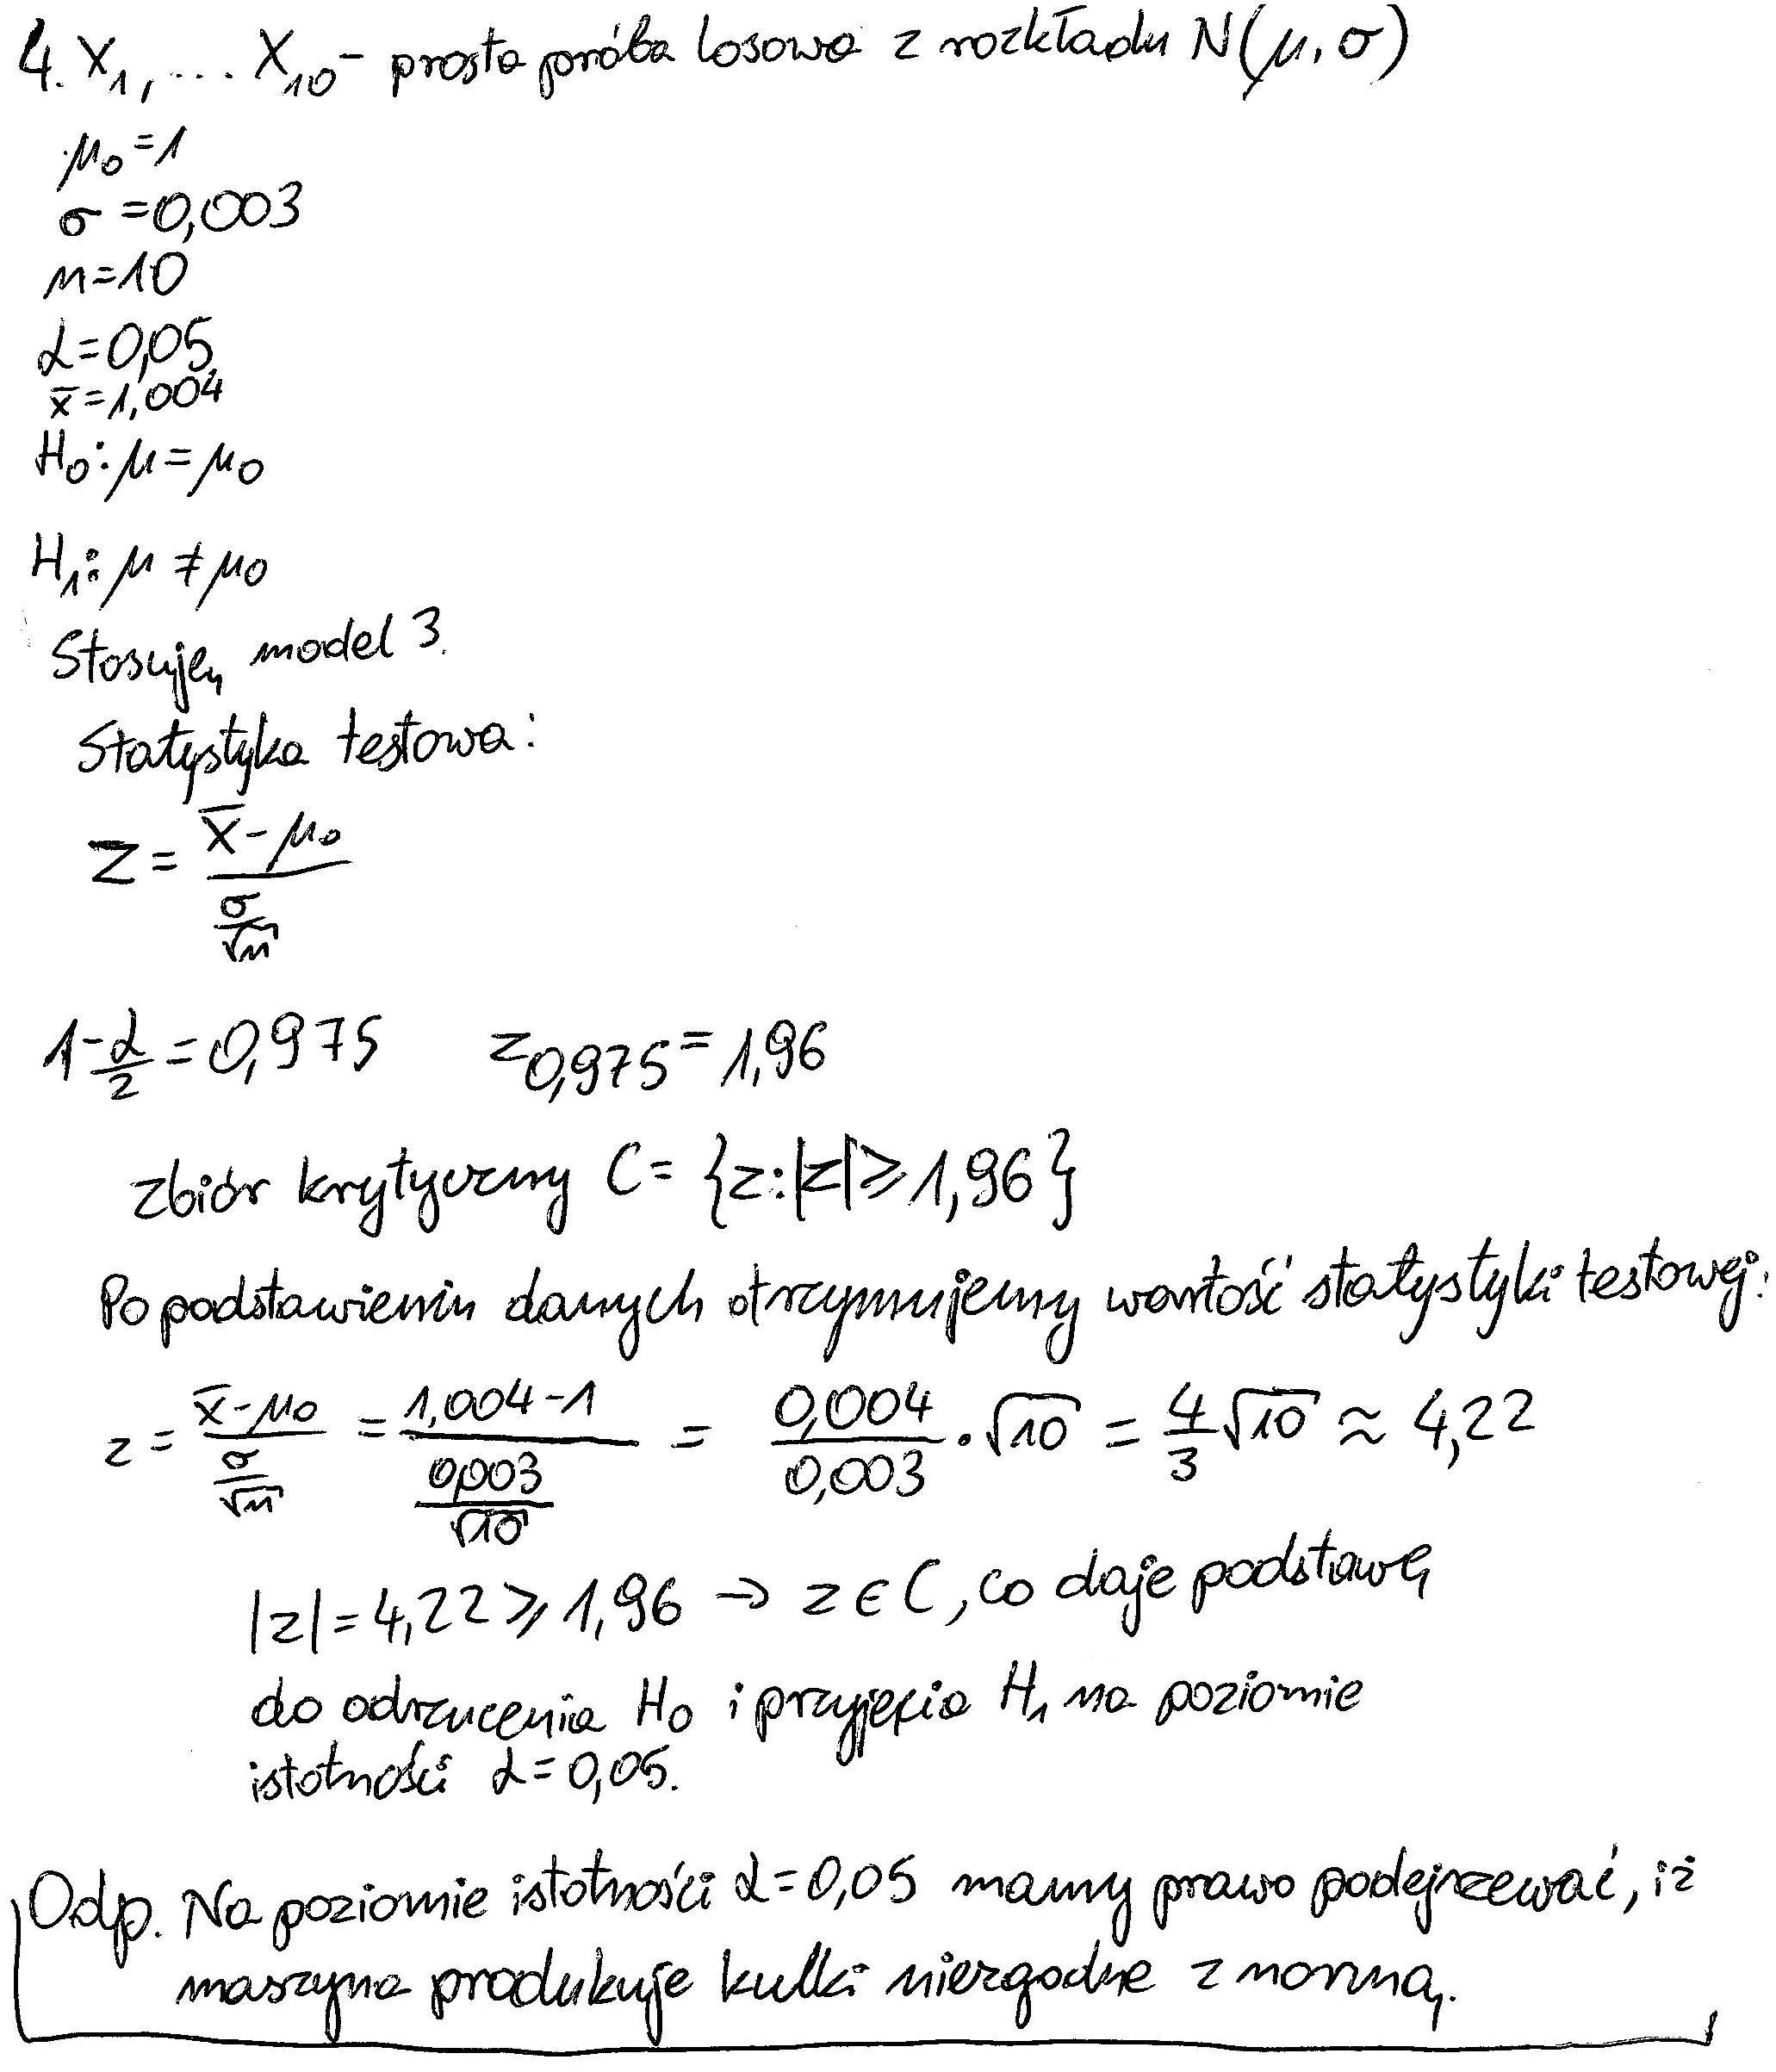 4. X₁, .... X₁₀ - prosta próba losowa z rozkładu N(μ, σ)
μ₀ = 1
σ = 0,003
n = 10
α = 0,05
x̄ = 1,004
H₀: μ = μ₀
H₁: μ ≠ μ₀
Stosuję model 3.
Statystyka testowa:
Z = (X̄ - μ₀) / (σ/√n)
1 - α/2 = 0,975 z₀,₉₇₅ = 1,96
zbiór krytyczny C = {z: |z| ≥ 1,96}
Po podstawieniu danych otrzymujemy wartość statystyki testowej:
z = (x̄ - μ₀) / (σ/√n) = (1,004 - 1) / (0,003/√10) = 0,004/0,003 · √10 = 4/3 √10 ≈ 4,22
|z| = 4,22 ≥ 1,96 → z ∈ C, co daje podstawę
do odrzucenia H₀ i przyjęcia H₁ na poziomie
istotności α = 0,05.
Odp. Na poziomie istotności α = 0,05 mamy prawo podejrzewać, iż
maszyna produkuje kulki niezgodne z normą.